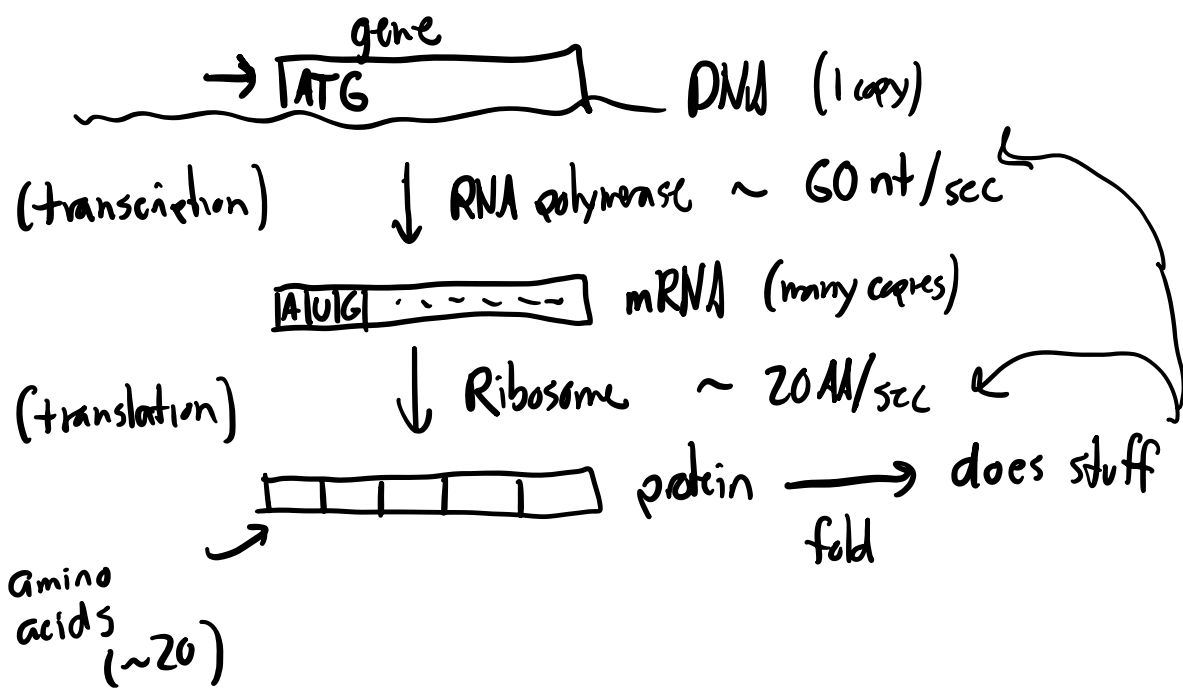 gene
ATG
DNA (1 copy)
(transcription)
RNA polymerase ~ 60 nt/sec
AUG
mRNA (many copies)
(translation)
Ribosome ~ 20 AA/sec
protein
fold
does stuff
amino
acids
(~20)